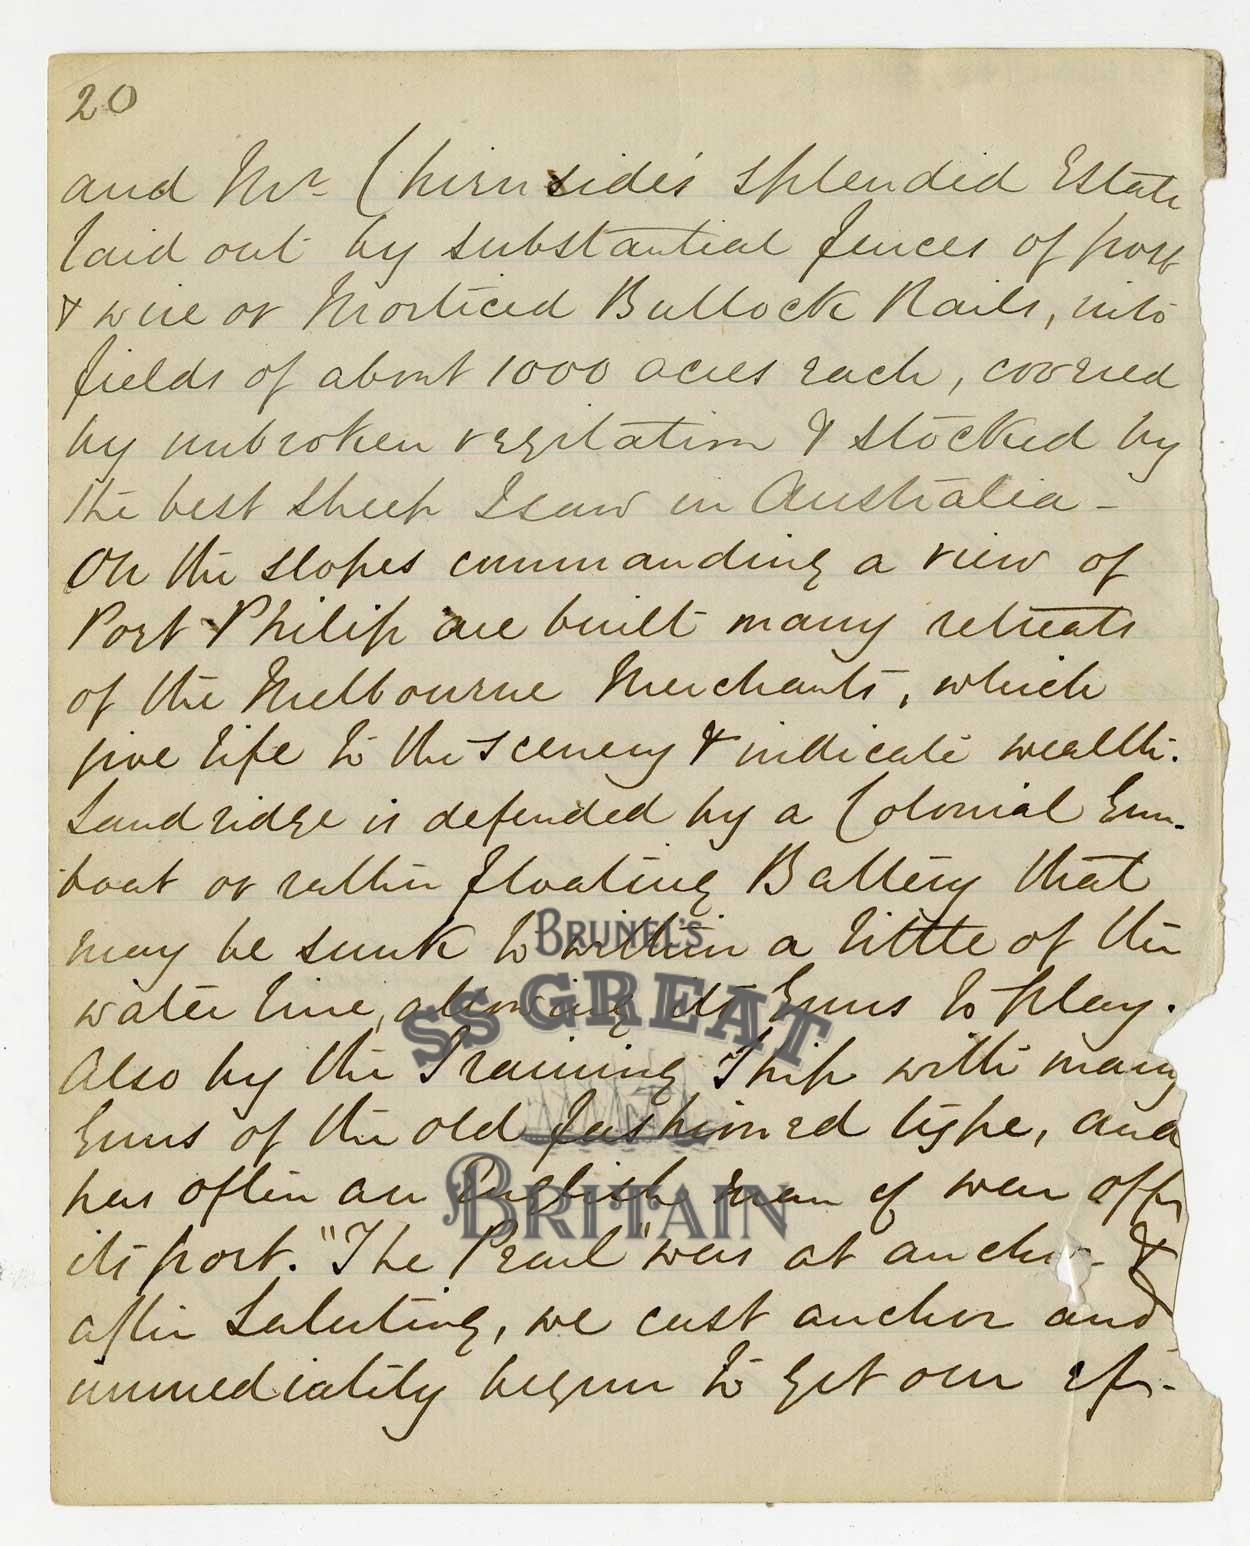 20
and Mr Chirnside's splendid Estate
laid out by substantial fences of post
& wire or Morticed Bullock Rails, into
fields of about 1000 acres each, covered
by unbroken vegitation & stocked by
the best sheep I saw in Australia -
On the slopes commanding a view of
Port Philip are built many retreats
of the Melbourne Merchants, which
give life to the scenery & indicate wealth.
Sandridge is defended by a Colonial Gun-
boat or rather floating Battery that
may be sunk to within a little of the
water line, allowing its Guns to play.
Also by the Training Ship with many
Guns of the old fashioned type, and
has often an English man of war off
its port. "The Pearl" was at anchor &
after Saluting, we cast anchor and
immediately begun to get our
BRUNEL'S
SS GREAT
BRITAIN